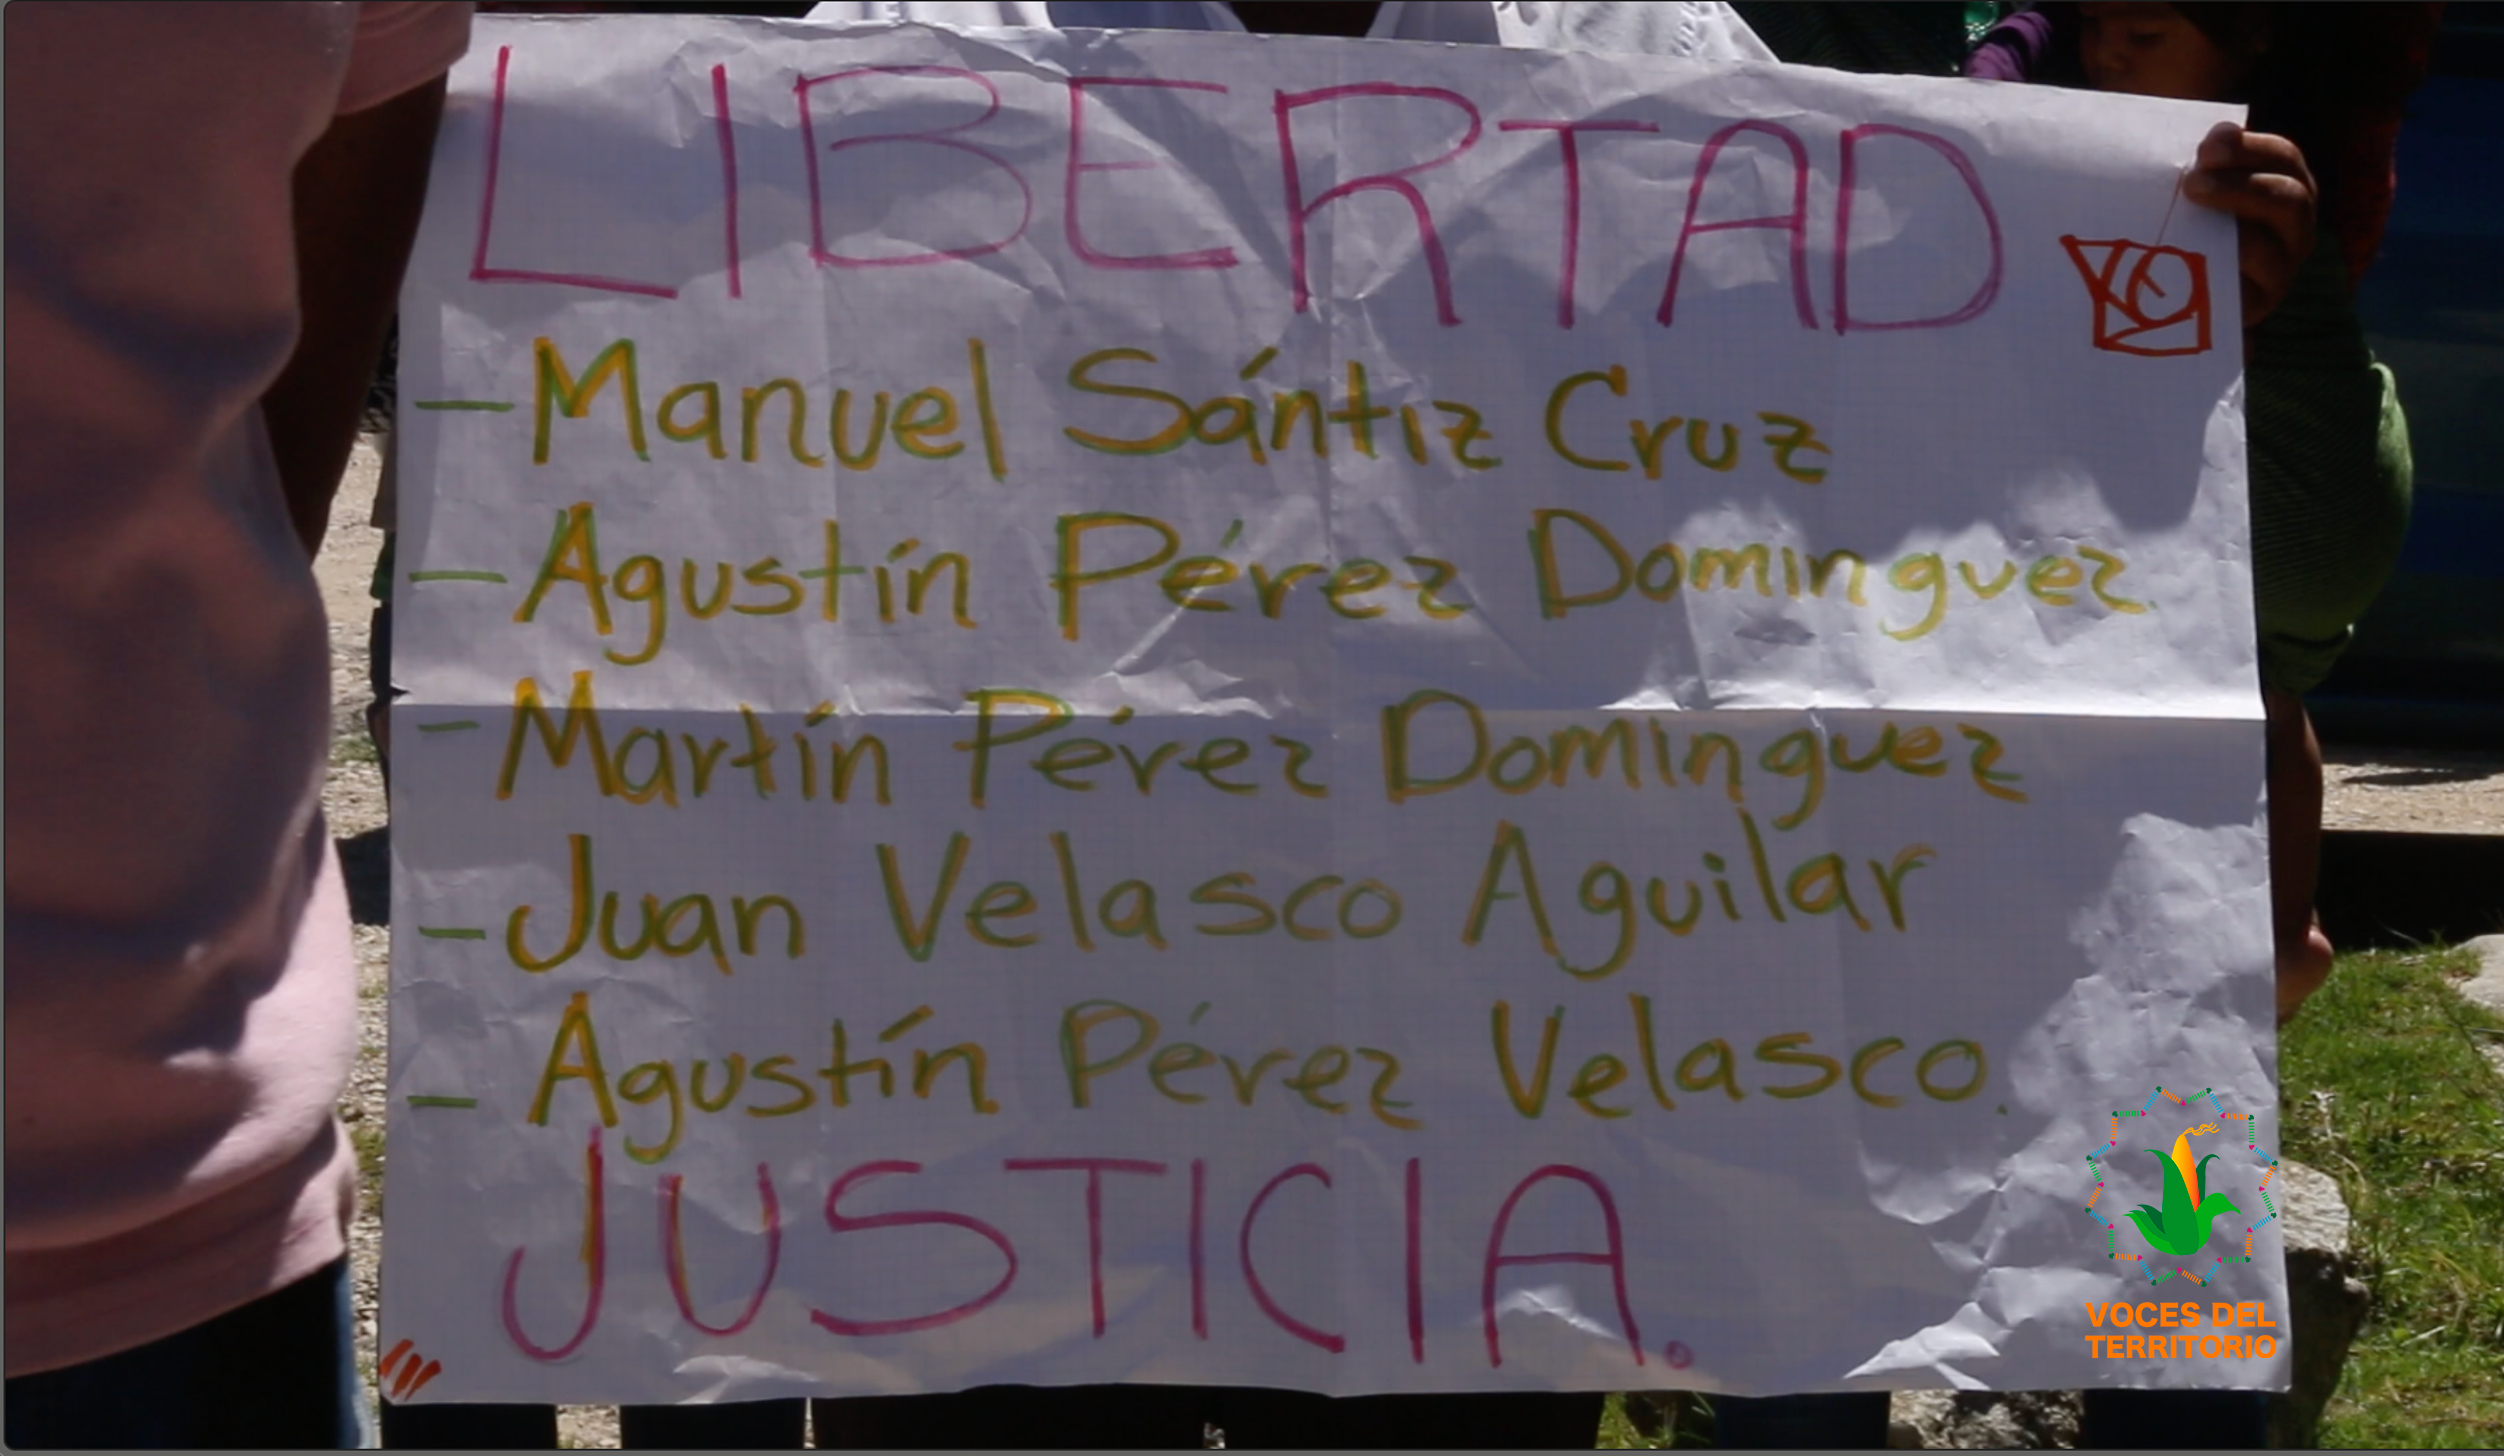 LIBERTAD
- Manuel Sántiz Cruz
- Agustín Pérez Dominguez.
- Martín Pérez Dominguez
- Juan Velasco Aguilar
- Agustín Pérez Velasco.
JUSTICIA.
VOCES DEL
TERRITORIO